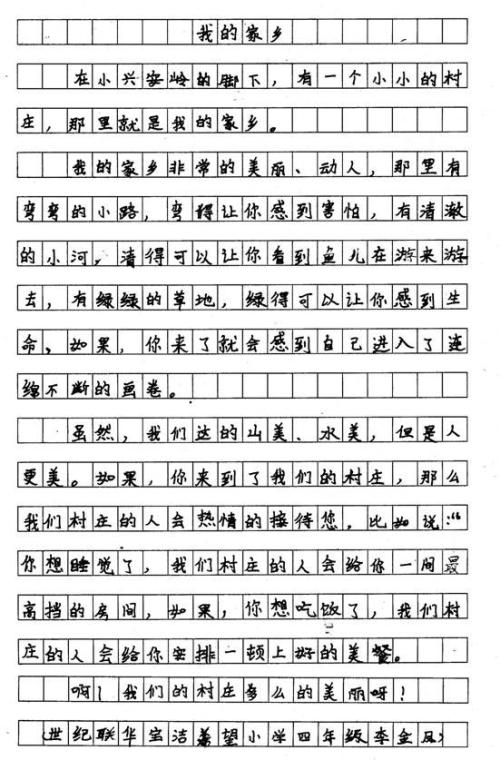 我的家乡
在小兴安岭的脚下，有一个小小的村
庄，那里就是我的家乡。
我的家乡非常的美丽、动人，那里有
弯弯的小路，弯得让你感到害怕，有清澈
的小河，清得可以让你看到鱼儿在游来游
去，有绿绿的草地，绿得可以让你感到生
命，如果，你来了就会感到自己进入了连
绵不断的画卷。
虽然，我们达的山美、水美，但是人
更美。如果，你来到了我们的村庄，那么
我们村庄的人会热情的接待您，比如说：“
你想睡觉了，我们村庄的人会给你一间最
高挡的房间，如果，你想吃饭了，我们村
庄的人会给你安排一顿上好的美餐。
啊！我们的村庄多么的美丽呀！
（世纪联华宝洁希望小学四年级李金凤）